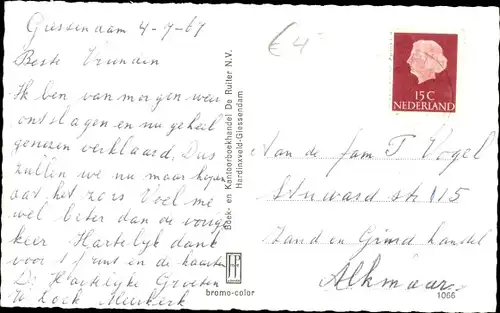 Giessendam 4-7-67
Beste Vrinden
Ik ben van morgen weer
ontslagen en nu geheel
genezen verklaard. Dus
zullen we nu maar hopen
dat het zo is Voel me
wel beter dan de vorige
keer Hartelijk dank
voor 't fruit en de kaarten
Dj Hartelijke Groeten
Meerkerk
Boek- en Kantoorboekhandel De Ruiter N.V.
Hardinxveld-Giessendam
bromo-color
€4-
15C
NEDERLAND
Aan de fam T Vogel
Stuward str 115
Zand en Grind handel
Alkmaar
1066